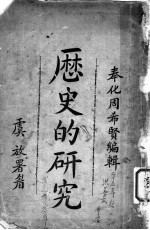 奉化周希賢編輯
歷史的研究
虞放署耑